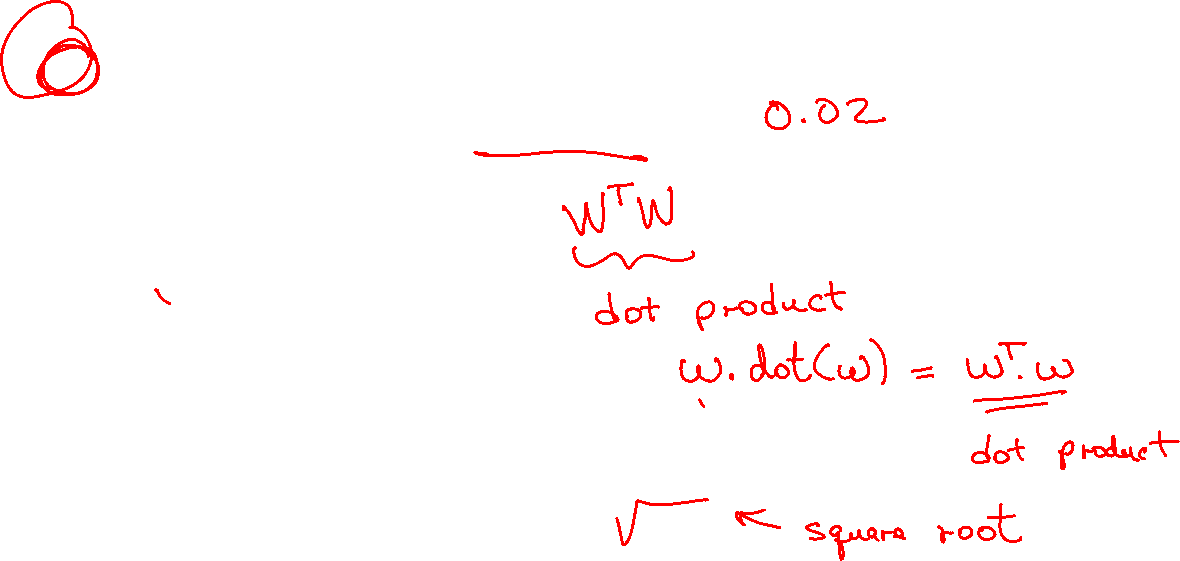 0.02
WᵀW
dot product
w.dot(w) = wᵀ.w
dot product
√ ← square root